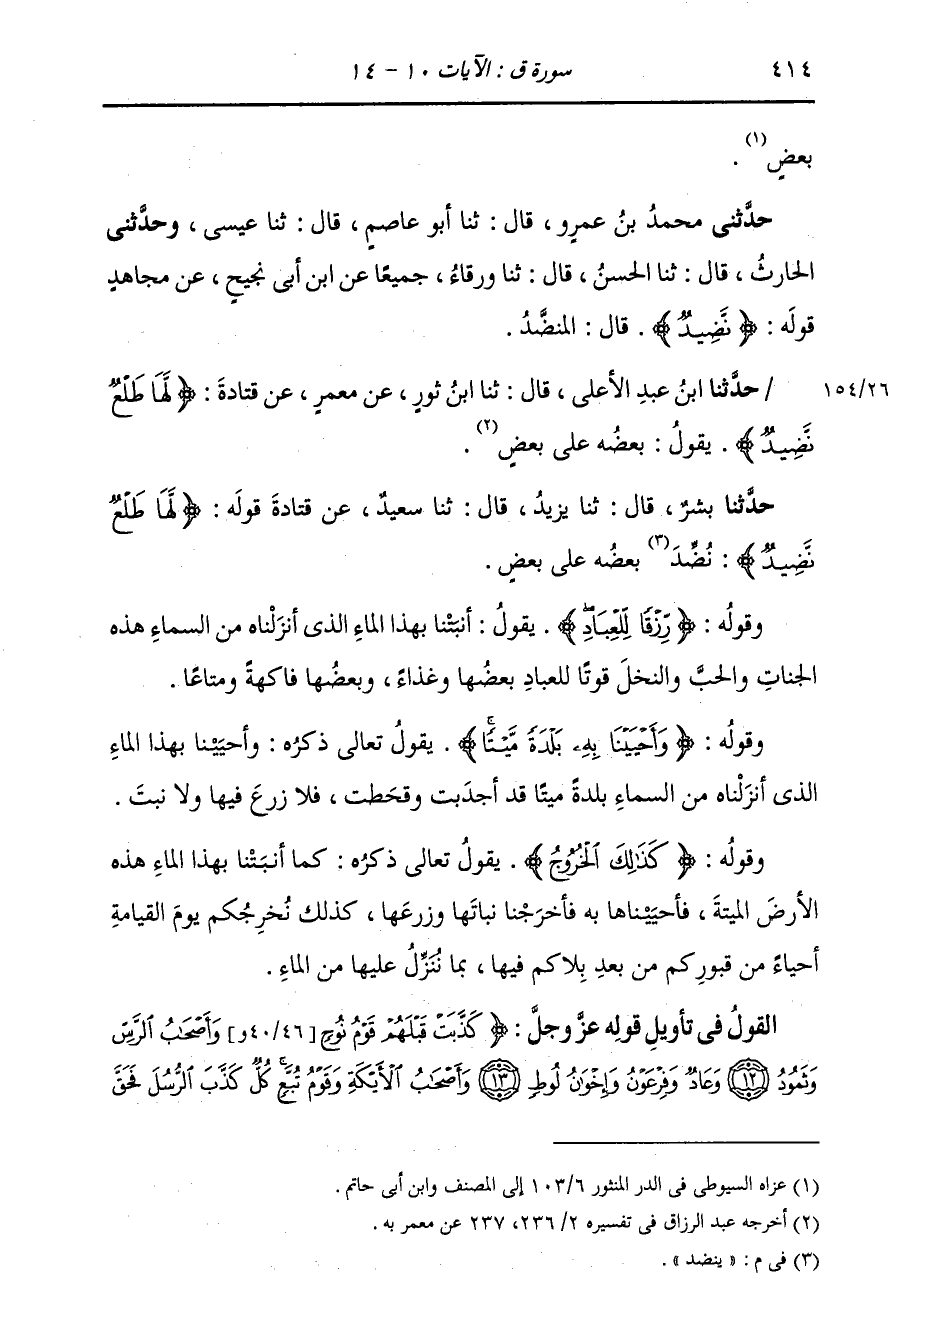 ٤١٤ سورة ق : الآيات ١٠ - ١٤
بعضٍ(١) .
حدَّثنى محمدُ بنُ عمرٍو ، قال : ثنا أبو عاصمٍ ، قال : ثنا عيسى ، وحدَّثنى
الحارثُ ، قال : ثنا الحسنُ ، قال : ثنا ورقاءُ ، جميعًا عن ابن أبى نجيحٍ ، عن مجاهدٍ
قولَه : ﴿ نَّضِيدٌ ﴾ . قال : المنضَّدُ .
١٥٤/٢٦ / حدَّثنا ابنُ عبدِ الأعلى ، قال : ثنا ابنُ ثورٍ ، عن معمرٍ ، عن قتادةَ : ﴿ لَّهَا طَلْعٌ
نَّضِيدٌ ﴾ . يقولُ : بعضُه على بعضٍ(٢) .
حدَّثنا بشرٌ ، قال : ثنا يزيدُ ، قال : ثنا سعيدٌ ، عن قتادةَ قولَه : ﴿ لَّهَا طَلْعٌ
نَّضِيدٌ ﴾ : نُضِّدَ(٣) بعضُه على بعضٍ .
وقولُه : ﴿ رِّزْقًا لِّلْعِبَادِۖ ﴾ . يقولُ : أنبَتْنا بهذا الماءِ الذى أنزَلْناه من السماءِ هذه
الجناتِ والحبَّ والنخلَ قوتًا للعبادِ بعضُها وغذاءً ، وبعضُها فاكهةً ومتاعًا .
وقولُه : ﴿ وَأَحْيَيْنَا بِهِۦ بَلْدَةً مَّيْتًاۚ ﴾ . يقولُ تعالى ذكرُه : وأحيَيْنا بهذا الماءِ
الذى أنزَلْناه من السماءِ بلدةً ميتًا قد أجدَبت وقحَطت ، فلا زرعَ فيها ولا نبتَ .
وقولُه : ﴿ كَذَٰلِكَ ٱلْخُرُوجُ ﴾ . يقولُ تعالى ذكرُه : كما أنبَتْنا بهذا الماءِ هذه
الأرضَ الميتةَ ، فأحيَيْناها به فأخرَجْنا نباتَها وزرعَها ، كذلك نُخرِجُكم يومَ القيامةِ
أحياءً من قبورِكم من بعدِ بِلاكم فيها ، بما نُنَزِّلُ عليها من الماءِ .
القولُ فى تأويلِ قولِه عزَّ وجلَّ : ﴿ كَذَّبَتْ قَبْلَهُمْ قَوْمُ نُوحٍ [٤٠/٤٦و] وَأَصْحَٰبُ ٱلرَّسِّ
وَثَمُودُ ١٢ وَعَادٌ وَفِرْعَوْنُ وَإِخْوَٰنُ لُوطٍ ١٣ وَأَصْحَٰبُ ٱلْأَيْكَةِ وَقَوْمُ تُبَّعٍۚ كُلٌّ كَذَّبَ ٱلرُّسُلَ فَحَقَّ
(١) عزاه السيوطى فى الدر المنثور ١٠٣/٦ إلى المصنف وابن أبى حاتم .
(٢) أخرجه عبد الرزاق فى تفسيره ٢/ ٢٣٦، ٢٣٧ عن معمر به .
(٣) فى م : « ينضد » .